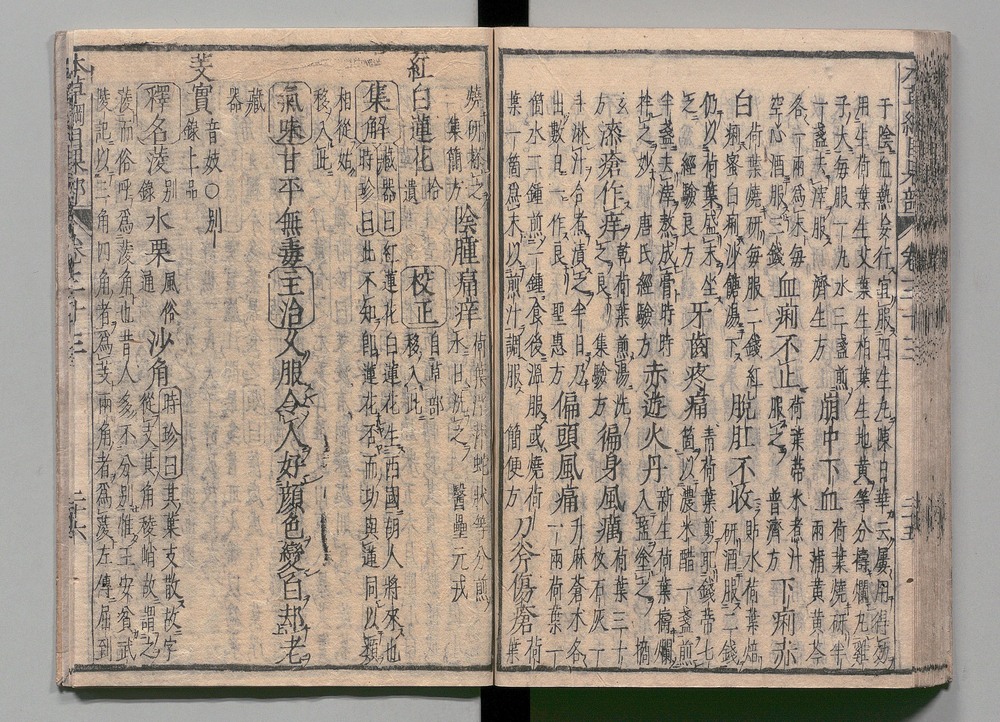 本草綱目果部 卷三十三 三十五
于陰血熱妄行宜服四生丸陳日華云屢用得効
用生荷葉生艾葉生柏葉生地黄等分擣爛丸雞
子大毎服一丸水三盞煎
一盞去滓服 濟生方
崩中下血
荷葉燒研半
兩蒲黄黄芩
各一兩爲末毎
空心酒服三錢
血痢不止
荷葉蒂水煮汁
服之 普濟方
下痢赤
白
荷葉燒研毎服二錢紅
痢蜜白痢沙糖湯下
脱肛不收
貼水荷葉焙
研酒服二錢
仍以荷葉盛末坐
之 經驗良方
牙齒疼痛
青荷葉剪取錢蒂七
箇以濃米醋一盞煎
半盞去滓熬成膏時時
抹之妙 唐氏經驗方
赤遊火丹
新生荷葉擣爛
入鹽塗之 摘
玄
方
漆瘡作痒
乾荷葉煎湯洗
之良 集驗方
徧身風癘
荷葉三十
枚石灰一
斗淋汁合煮漬之半日乃
出數日一作良 聖惠方
偏頭風痛
升麻蒼术各
一兩荷葉一
箇水二鍾煎一鍾食後温服或燒荷
葉一箇爲末以煎汁調服 簡便方
刀斧傷瘡
荷
葉
燒研糝之
集簡方
陰腫痛痒
荷葉浮萍蛇牀等分煎
水日洗之 醫壘元戎
紅白蓮花
拾
遺
校正
自草部
移入此
集解
藏器曰紅蓮花白蓮花生西國胡人將來也
時珍曰此不知即蓮花否而功與蓮同以類
相從姑
移入此
氣味甘平無毒主治久服令人好顔色變白却老
藏
器
芰實
音妓○別
錄上品
釋名蔆
別
錄
水栗
風俗
通
沙角
時珍曰其葉支散故字
從支其角稜峭故謂之
蔆而俗呼爲蔆角也昔人多不分別惟王安貧武
陵記以三角四角者爲芰兩角者爲蔆左傳屈到
本草綱目果部 卷三十三 三十六